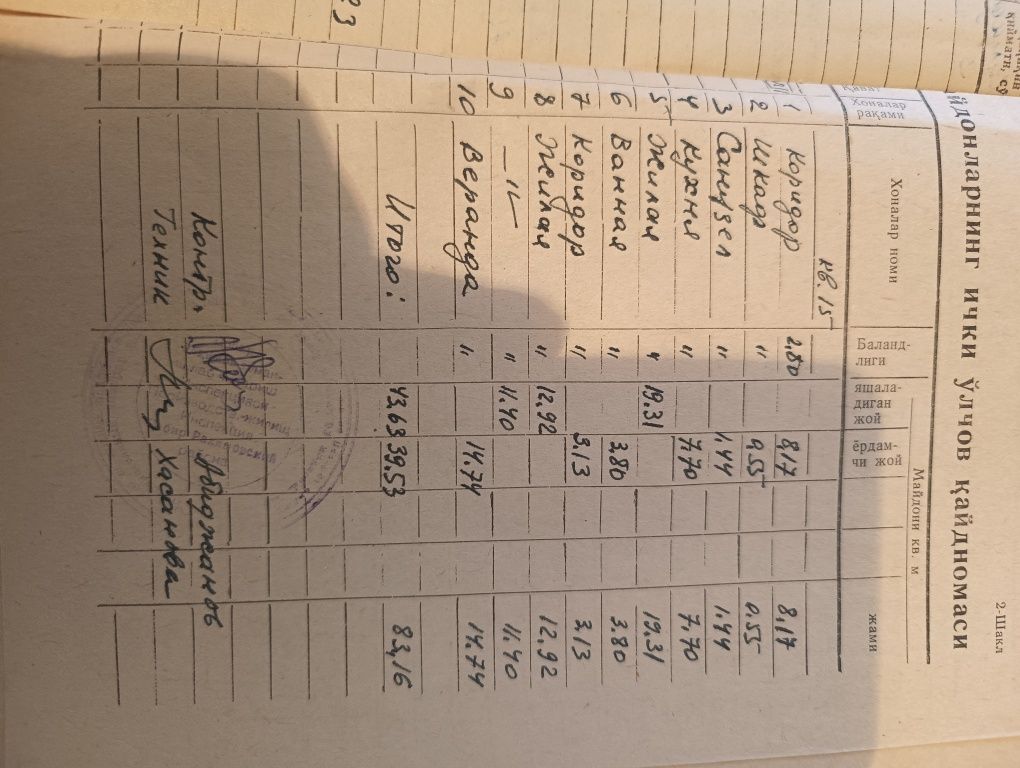 2-Шакл
йдонларнинг ички ўлчов қайдномаси
Хоналар рақами
Хоналар номи
Баланд-
лиги
Майдони кв. м
яшала-
диган
жой
ёрдам-
чи жой
жами
кв. 15
1 Коридор 2.80 8,17 8,17
2 Шкаф " 0.55 0.55
3 Санузел " 1.44 1.44
4 Кухня " 7.70 7.70
5 Жилая " 19.31 19.31
6 Ванная " 3.80 3.80
7 Коридор " 3.13 3.13
8 Жилая " 12.92 12.92
9 —"— " 11.40 11.40
10 Веранда " 14.74 14.74
Итого: 43,63 39,53 83,16
Контр. Абиджанов
Техник Хасанова
23